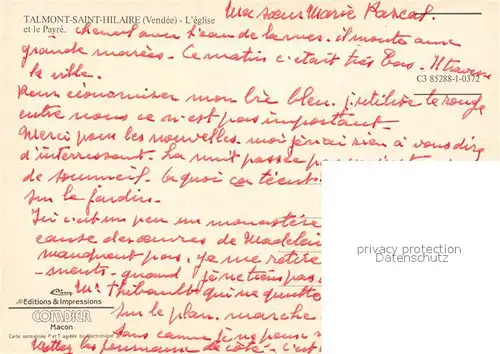 TALMONT-SAINT-HILAIRE (Vendée) - L'église
et le Payré.
Ma sœur Marie Pascal.
chenal avec l'eau de la mer. il monte aux
grande marées. Ce matin c'était très bas. Il traverse
la ville.
C3 85288-1-0372
Pour économiser mon bic bleu. j'utilise le rouge
entre nous ce n'est pas important.
Merci pour les nouvelles. moi je n'ai rien à vous dire
d'interressant. La nuit passée
de sommeil. de quoi
sur le jardin.
Ici c'est un peu un monastère
cause des œuvres de Madelei
manquent pas. je me retire
ments. quand je ne tiens pas
Mr Thibault qui ne quitte
Editions & Impressions
sur le plan. marche
COMBIER
Macon
sans canne je ne peux
Carte normalisée P et T agréée
Mettez les de côté - c'est
privacy protection
Datenschutz